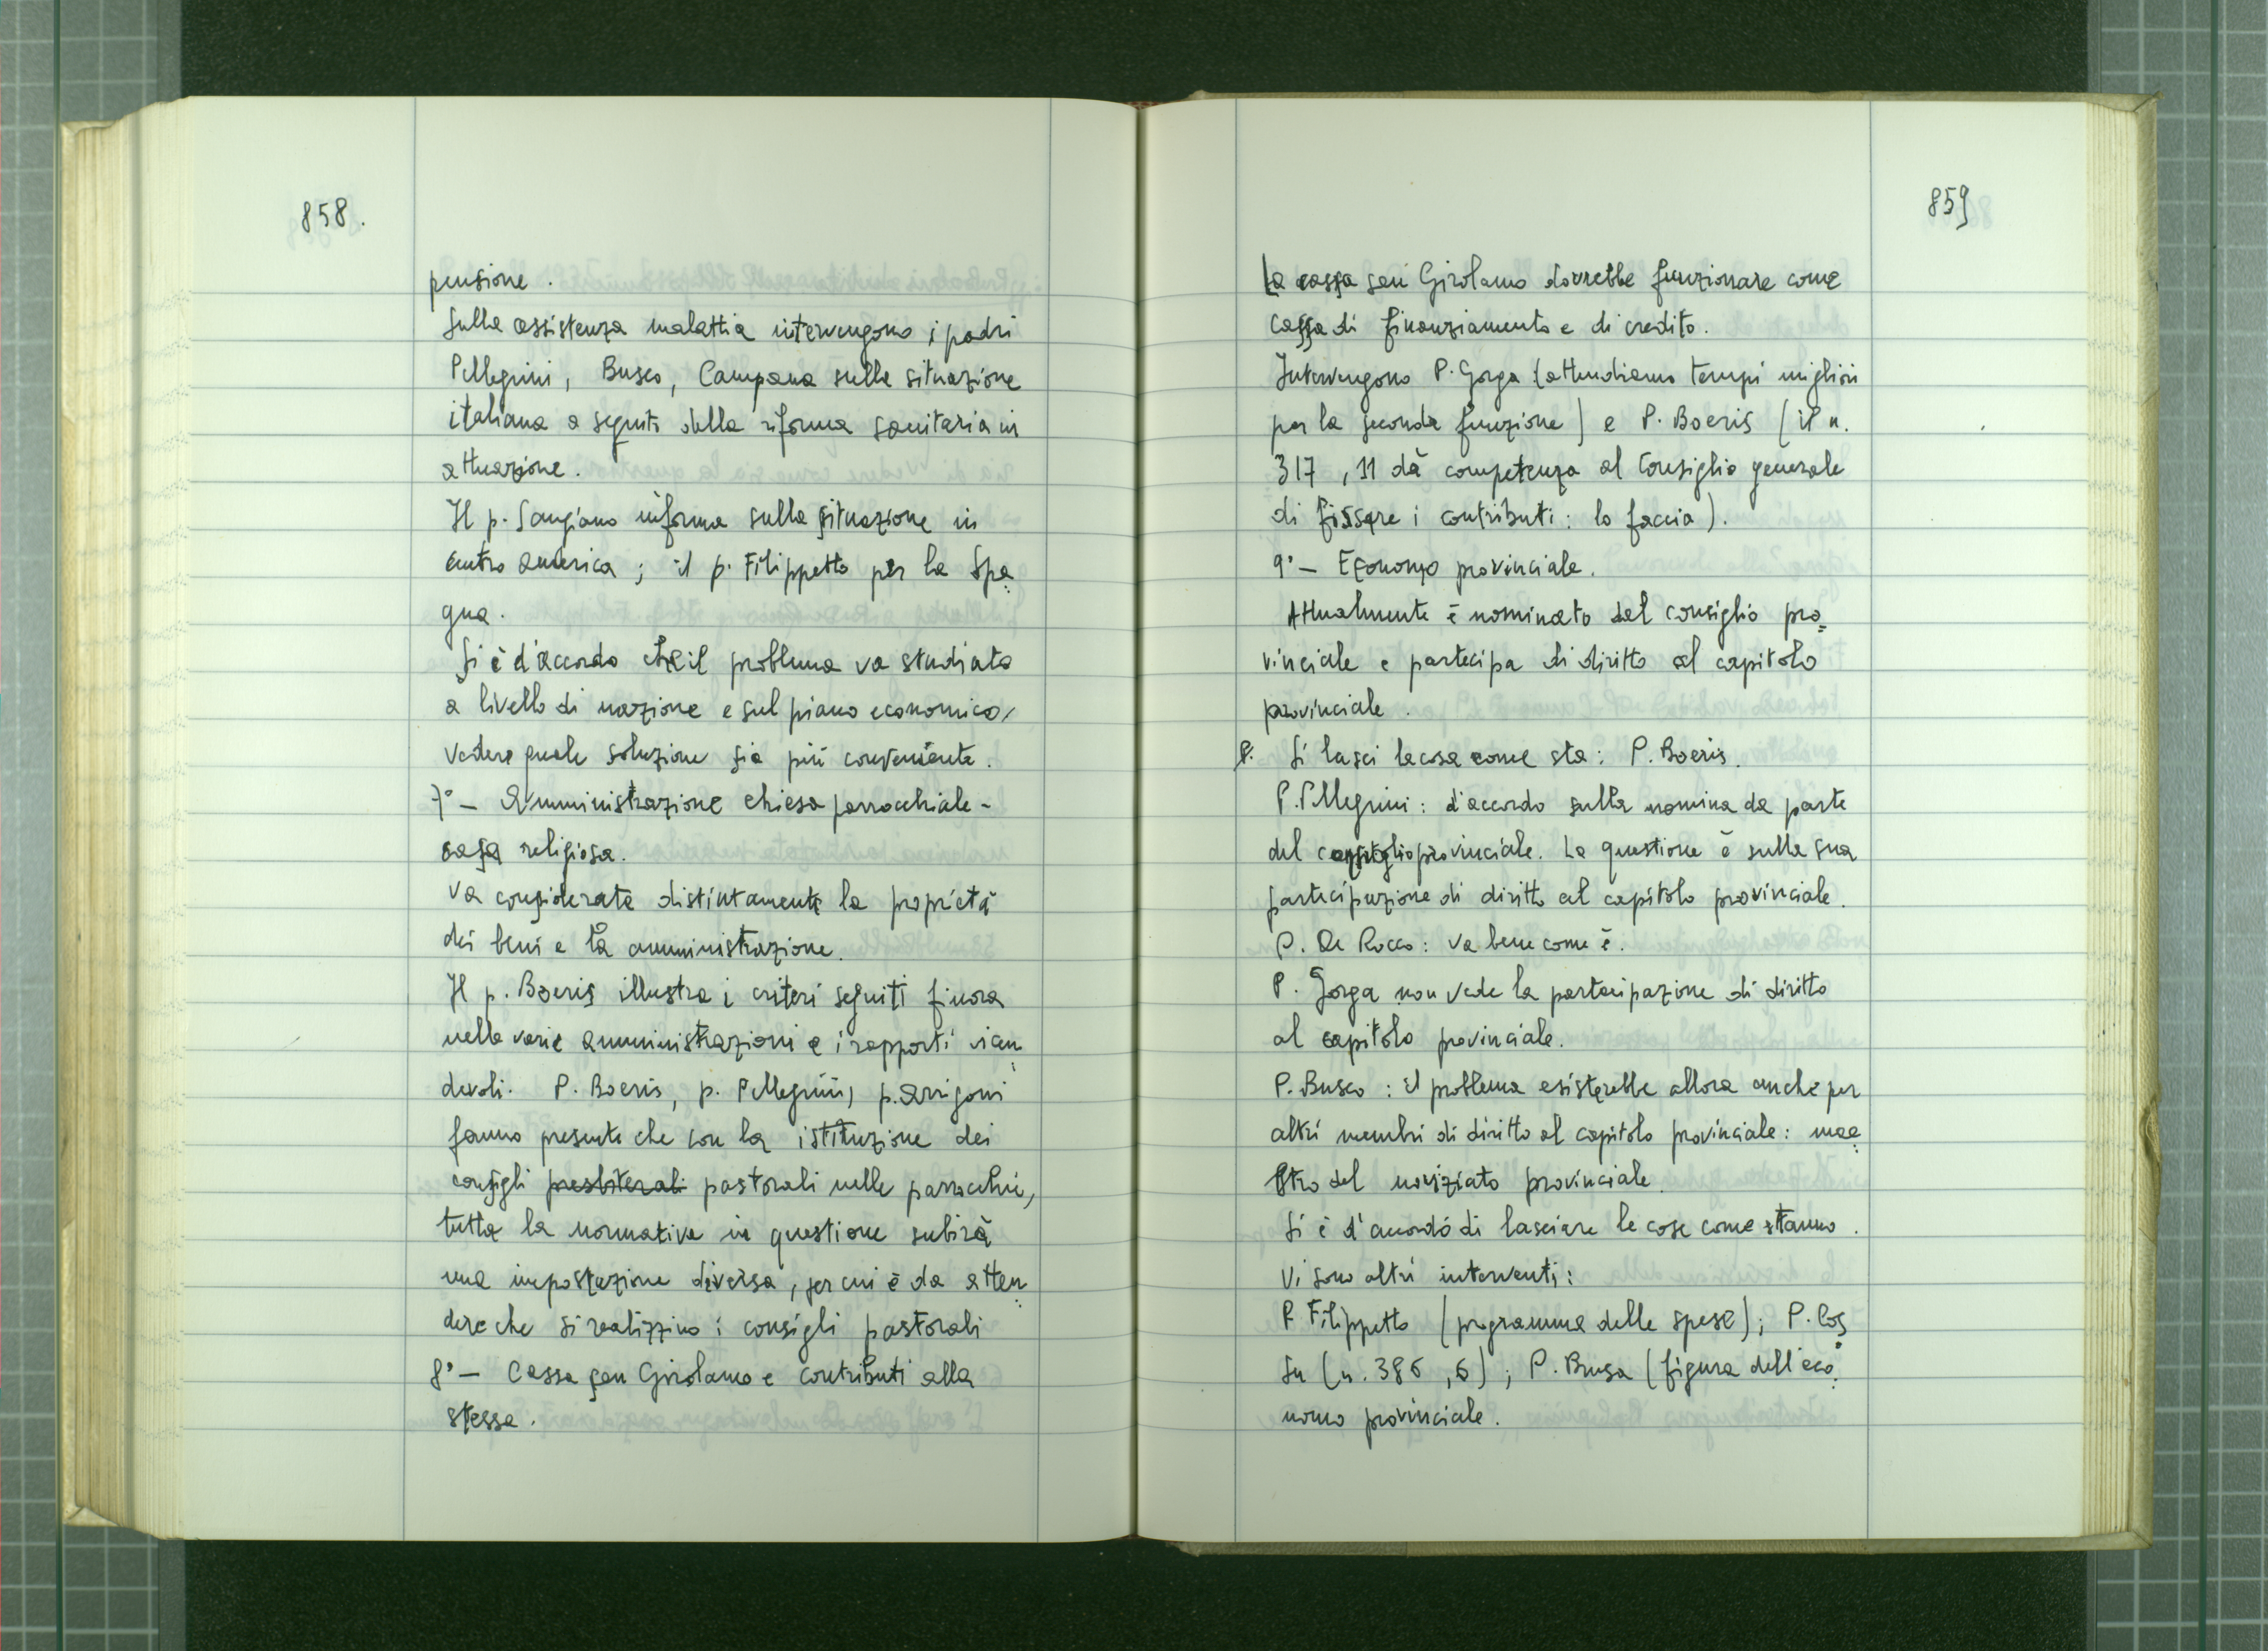 858.
pensione.
Sulla assistenza malattia intervengono i padri
Pellegrini, Busco, Campana sulla situazione
italiana a seguito della riforma sanitaria in
attuazione.
Il p. Sangiano informa sulla situazione in
centro America; il p. Filippetto per la Spa=
gna.
Si è d'accordo che il problema va studiato
a livello di nazione e sul piano economico,
vedere quale soluzione sia più conveniente.
7° — Amministrazione chiesa parrocchiale-
casa religiosa.
Va considerata distintamente la proprietà
dei beni e la amministrazione.
Il p. Boeris illustra i criteri seguiti finora
nelle varie amministrazioni e i rapporti vicen=
devoli. P. Boeris, p. Pellegrini, p. Arrigoni
fanno presente che con la istituzione dei
consigli presbiterali pastorali nelle parrocchie,
tutta la normativa in questione subirà
una impostazione diversa, per cui è da atten=
dere che si realizzino i consigli pastorali
8° — Cassa san Girolamo e contributi alla
stessa.
859
La cassa san Girolamo dovrebbe funzionare come
cassa di finanziamento e di credito.
Intervengono P. Gorga (attendiamo tempi migliori
per la seconda funzione) e P. Boeris (il n.
317, 11 dà competenza al Consiglio generale
di fissare i contributi: lo faccia).
9° — Economo provinciale.
Attualmente è nominato dal consiglio pro=
vinciale e partecipa di diritto al capitolo
provinciale.
P. Si lasci la cosa come sta: P. Boeris.
P. Pellegrini: d'accordo sulla nomina da parte
del consiglio provinciale. La questione è sulla sua
partecipazione di diritto al capitolo provinciale.
P. De Rocco: va bene come è.
P. Gorga non vede la partecipazione di diritto
al capitolo provinciale.
P. Busco: il problema esisterebbe allora anche per
altri membri di diritto al capitolo provinciale: mae=
stro del noviziato provinciale.
Si è d'accordo di lasciare le cose come stanno.
Vi sono altri interventi:
P. Filippetto (programma delle spese); P. Cos=
su (n. 386, 6); P. Brusa (figura dell'eco=
nomo provinciale.